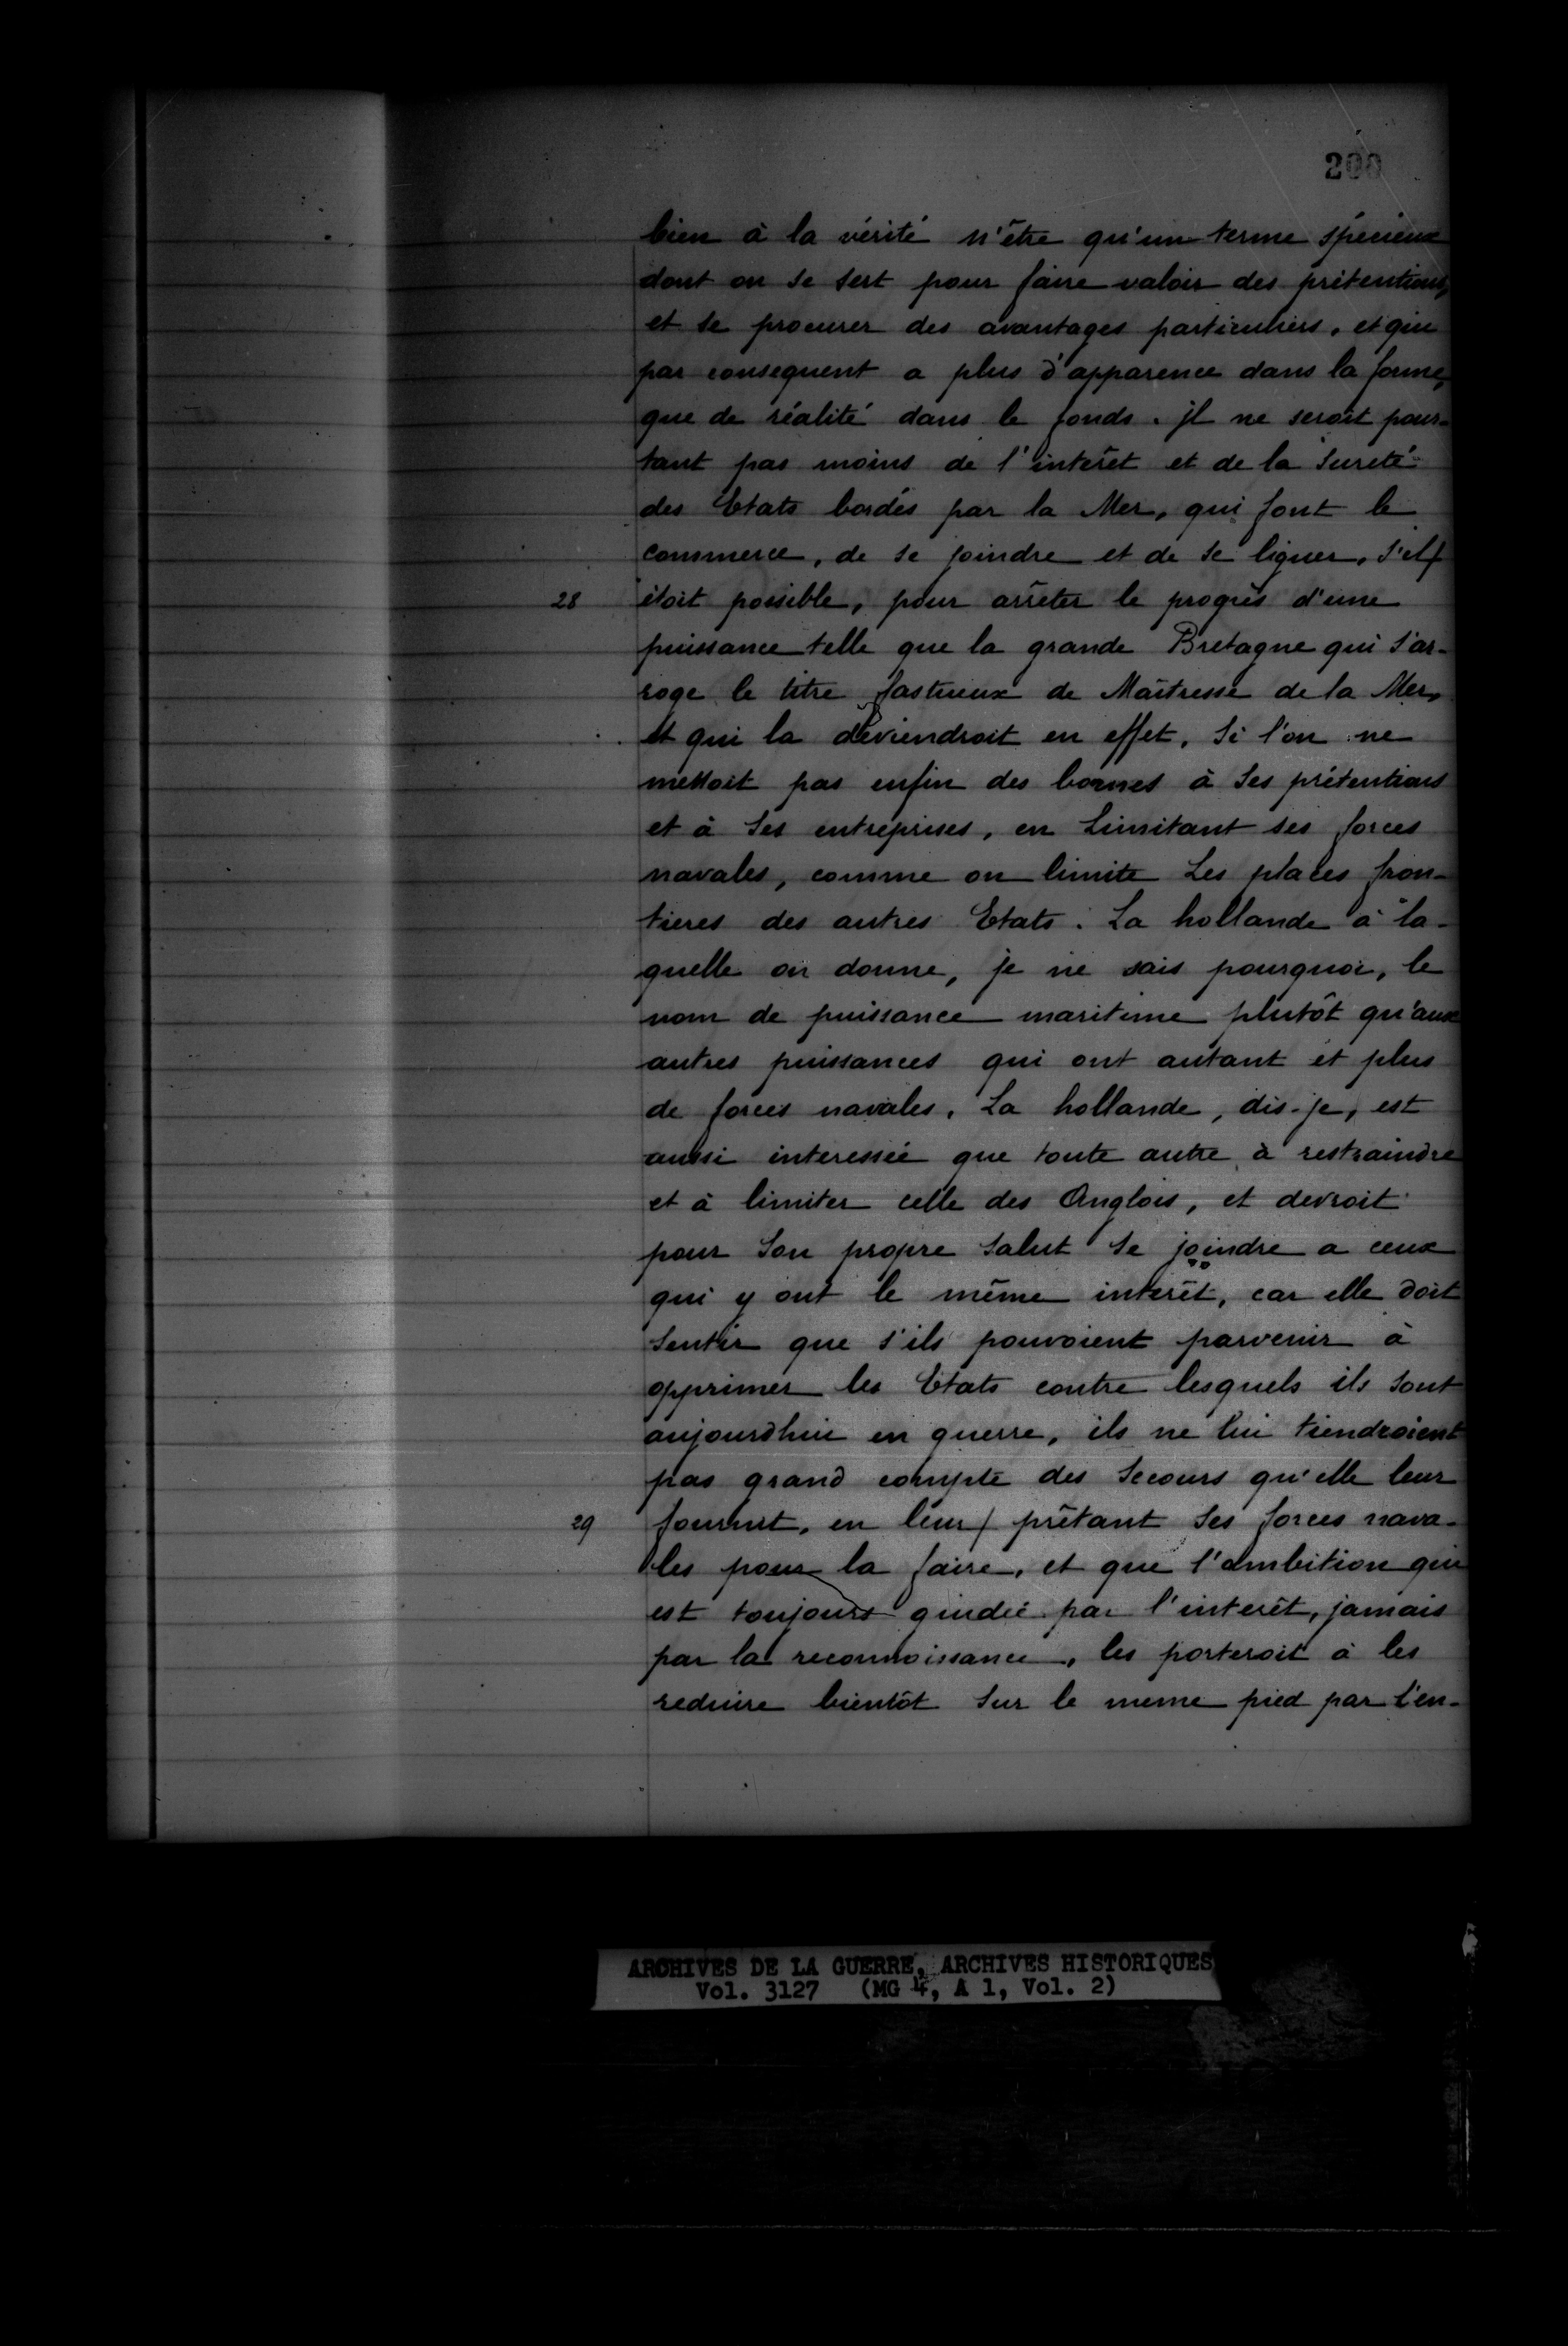 200
bien à la vérité n'être qu'un terme spécieux
dont on se sert pour faire valoir des prétentions,
et se procurer des avantages particuliers, et qui
par consequent a plus d'apparence dans la forme,
que de réalité dans le fonds. jl ne seroit pour-
tant pas moins de l'interêt et de la Sureté
des Etats bordés par la Mer, qui font le
commerce, de se joindre et de se liguer, s'il/
28 étoit possible, pour arrêter le progrès d'une
puissance telle que la grande Bretagne qui s'ar-
roge le titre fastueux de Maîtresse de la Mer,
et qui la deviendroit en effet, Si l'on ne
mettoit pas enfin des bornes à Ses prétentions
et à Ses entreprises, en Limitant ses forces
navales, comme on limite Les places fron-
tieres des autres Etats. La hollande à la-
quelle on donne, je ne sais pourquoi, le
nom de puissance maritime plutôt qu'aux
autres puissances qui ont autant et plus
de forces navales, La hollande, dis-je, est
aussi interessée que toute autre à restraindre
et à limiter celle des Anglois, et devroit
pour Son propre Salut Se joindre a ceux
qui y ont le même interêt, car elle doit
Sentir que s'ils pouvoient parvenir à
opprimer les Etats contre lesquels ils Sont
aujourdhui en guerre, ils ne lui tiendroient
pas grand compte des Secours qu'elle leur
29 fournit, en leur/ prêtant Ses forces nava-
les pour la faire, et que l'ambition qui
est toujours guidée par l'interêt, jamais
par la reconnoissance, les porteroit à les
reduire bientôt Sur le meme pied par l'en-
ARCHIVES DE LA GUERRE, ARCHIVES HISTORIQUES
Vol. 3127 (MG 4, A 1, Vol. 2)